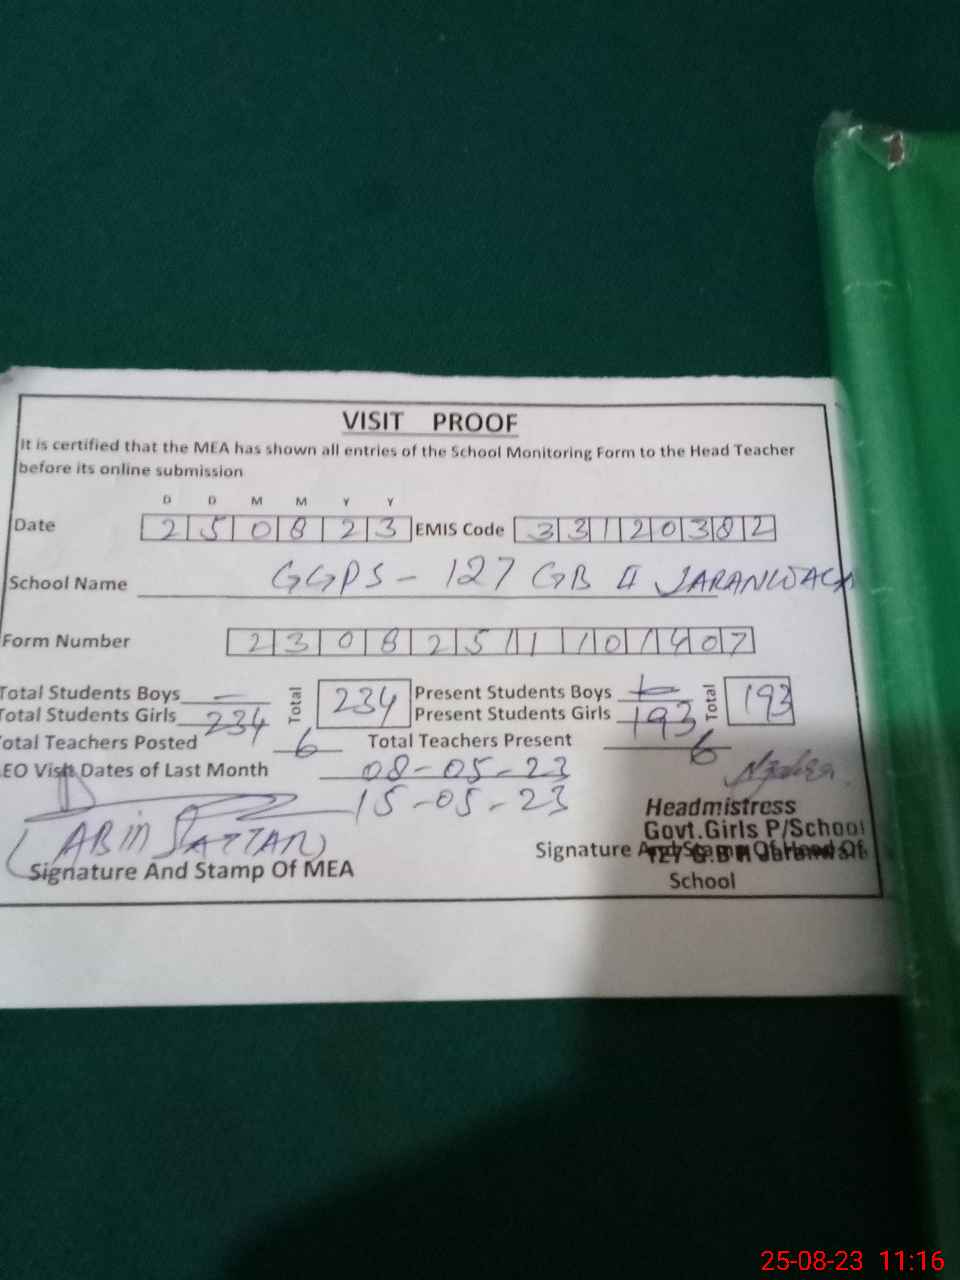 VISIT PROOF
It is certified that the MEA has shown all entries of the School Monitoring Form to the Head Teacher
before its online submission
D D M M Y Y
Date 2 5 0 8 2 3 EMIS Code 3 3 1 2 0 3 8 2
School Name GGPS - 127 GB II JARANWALA
Form Number 2 3 0 8 2 5 1 1 1 0 1 4 0 7
Total Students Boys — Total 234 Present Students Boys Total 193
Total Students Girls 234 Present Students Girls 193
Total Teachers Posted 6 Total Teachers Present 6
EO Visit Dates of Last Month 08-05-23
15-05-23
(ABID SATTAR)
Signature And Stamp Of MEA
Headmistress
Govt.Girls P/School
127 G.B II Jaranwala
Signature And Stamp Of Head Of
School
25-08-23 11:16